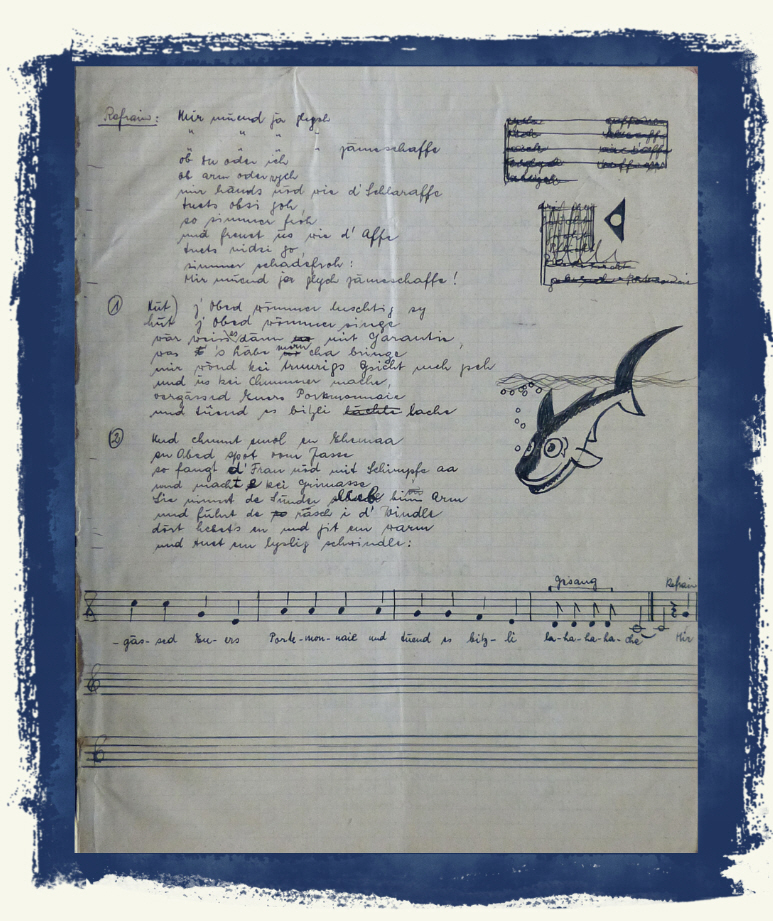 Refrain: Mir müend ja glych
" " "
" " " " zämeschaffe
ob du oder ich
ob arm oder rych
mir händs nüd wie d'Schlaraffe
tuets obsi goh,
so simmer froh
und freuet üs wie d'Affe
tuets nidsi go,
simmer schadefroh:
Mir müend ja glych zämeschaffe!
① Hüt) z'Obed wömmer luschtig sy
hüt z'Obed wömmer singe
wär weiss dänn mit Garantie,
was s'häbe cha bringe
mir wönd kei truurigs Gsicht meh gseh
und üs kei Chummer mache,
vergässed Euers Portmonnaie
und tüend es bitzli lache
② Und chunnt emol en Ehemaa
en Obed spot vom Jasse
so fangt d'Frau nüd mit Schimpfe aa
und macht kei Grimasse
Sie nimmt de Sünder lieb Arm
und führt de räsch i d'Windle
dört hebets en und git em warm
und tuet em lyslig schwindle:
Gsang Refrain
-gäs-sed Eu-ers Porte-mon-naie und tüend es bitz-li la-ha-ha-ha-che Mir